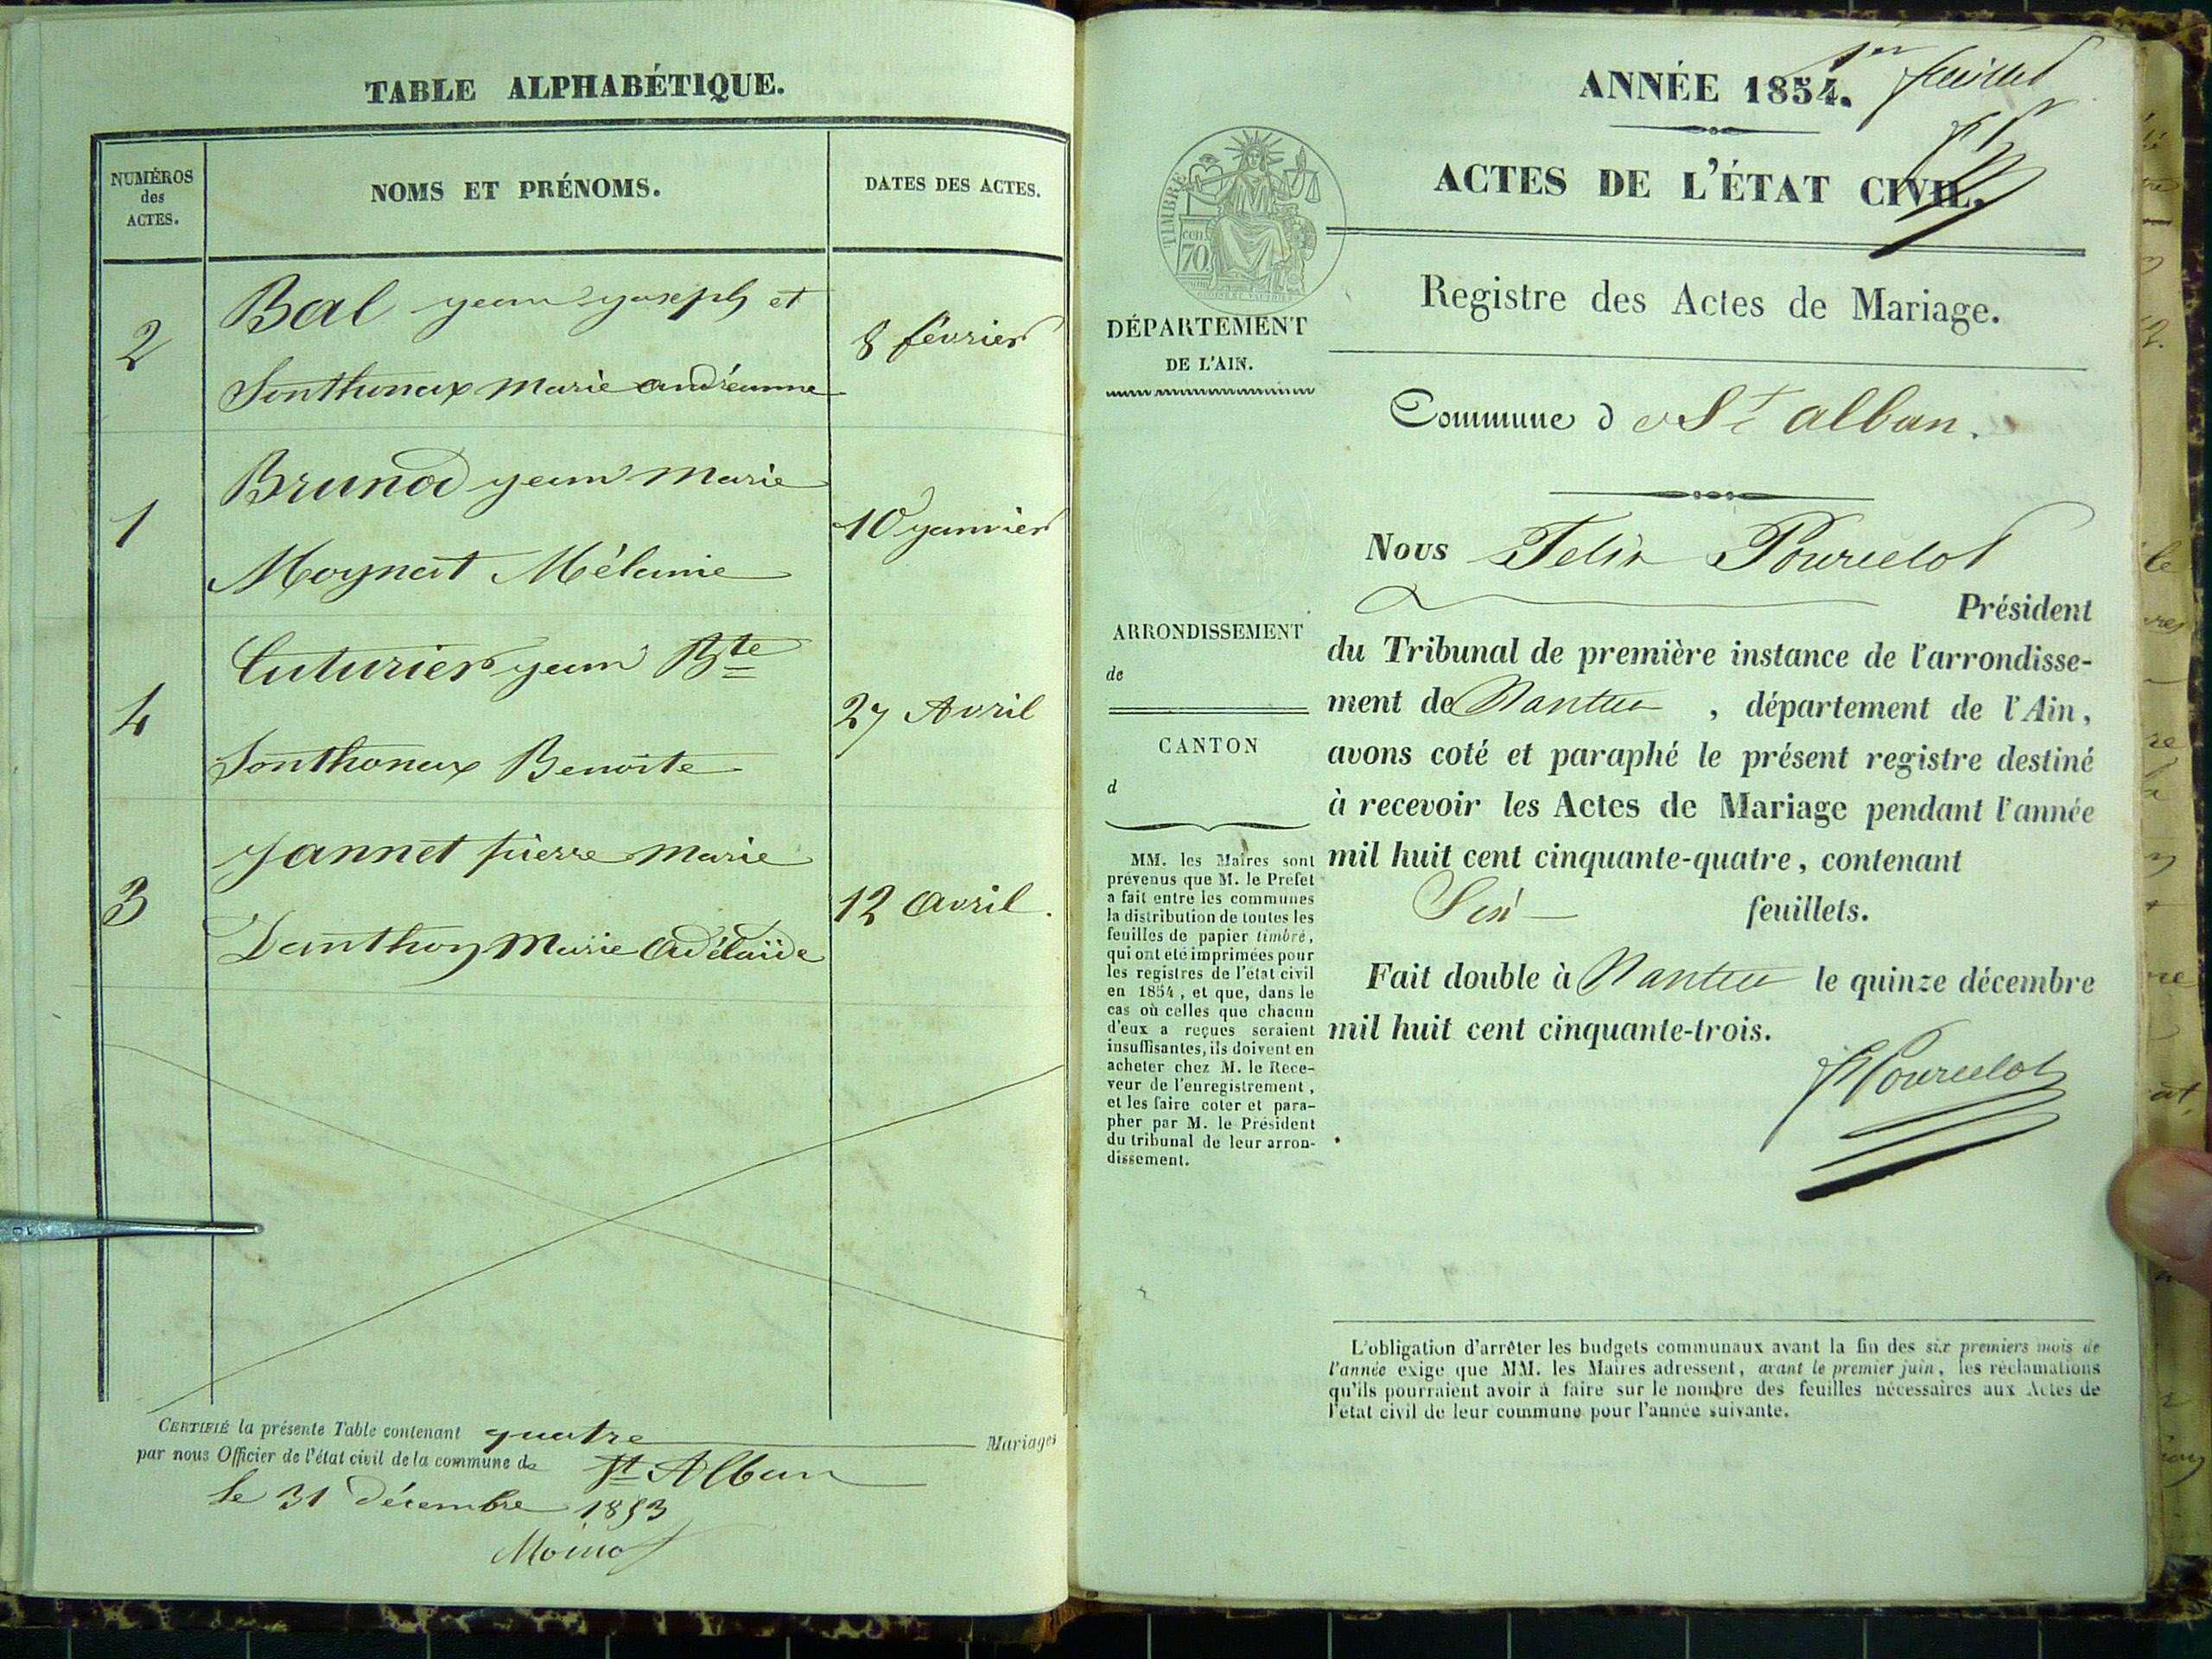 TABLE ALPHABÉTIQUE.
NUMÉROS
des
ACTES.
NOMS ET PRÉNOMS.
DATES DES ACTES.
2
Bal yean yoseph et
Sonthonax Marie andréanne
8 février
1
Brunod yean Marie
Moynat Mélanie
10 yanvier
4
Cuturier yean Bte
Sonthonax Benoîte
27 Avril
3
Jannet pierre Marie
Danthon Marie Adélaïde
12 avril.
CERTIFIÉ la présente Table contenant quatre Mariages
par nous Officier de l'état civil de la commune de St Alban
le 31 décembre 1853
1er feuillet
ANNÉE 1854.
ACTES DE L'ÉTAT CIVIL.
TIMBRE
cen.
70
Registre des Actes de Mariage.
DÉPARTEMENT
DE L'AIN.
Commune de St alban.
ARRONDISSEMENT
de
CANTON
d
MM. les Maires sont
prévenus que M. le Préfet
a fait entre les communes
la distribution de toutes les
feuilles de papier timbré,
qui ont été imprimées pour
les registres de l'état civil
en 1854, et que, dans le
cas où celles que chacun
d'eux a reçues seraient
insuffisantes, ils doivent en
acheter chez M. le Rece-
veur de l'enregistrement,
et les faire coter et para-
pher par M. le Président
du tribunal de leur arron-
dissement.
Nous Felix Pourcelot
Président
du Tribunal de première instance de l'arrondisse-
ment de Nantua, département de l'Ain,
avons coté et paraphé le présent registre destiné
à recevoir les Actes de Mariage pendant l'année
mil huit cent cinquante-quatre, contenant
Six feuillets.
Fait double à Nantua le quinze décembre
mil huit cent cinquante-trois.
Pourcelot
L'obligation d'arrêter les budgets communaux avant la fin des six premiers mois de
l'année exige que MM. les Maires adressent, avant le premier juin, les réclamations
qu'ils pourraient avoir à faire sur le nombre des feuilles nécessaires aux Actes de
l'état civil de leur commune pour l'année suivante.